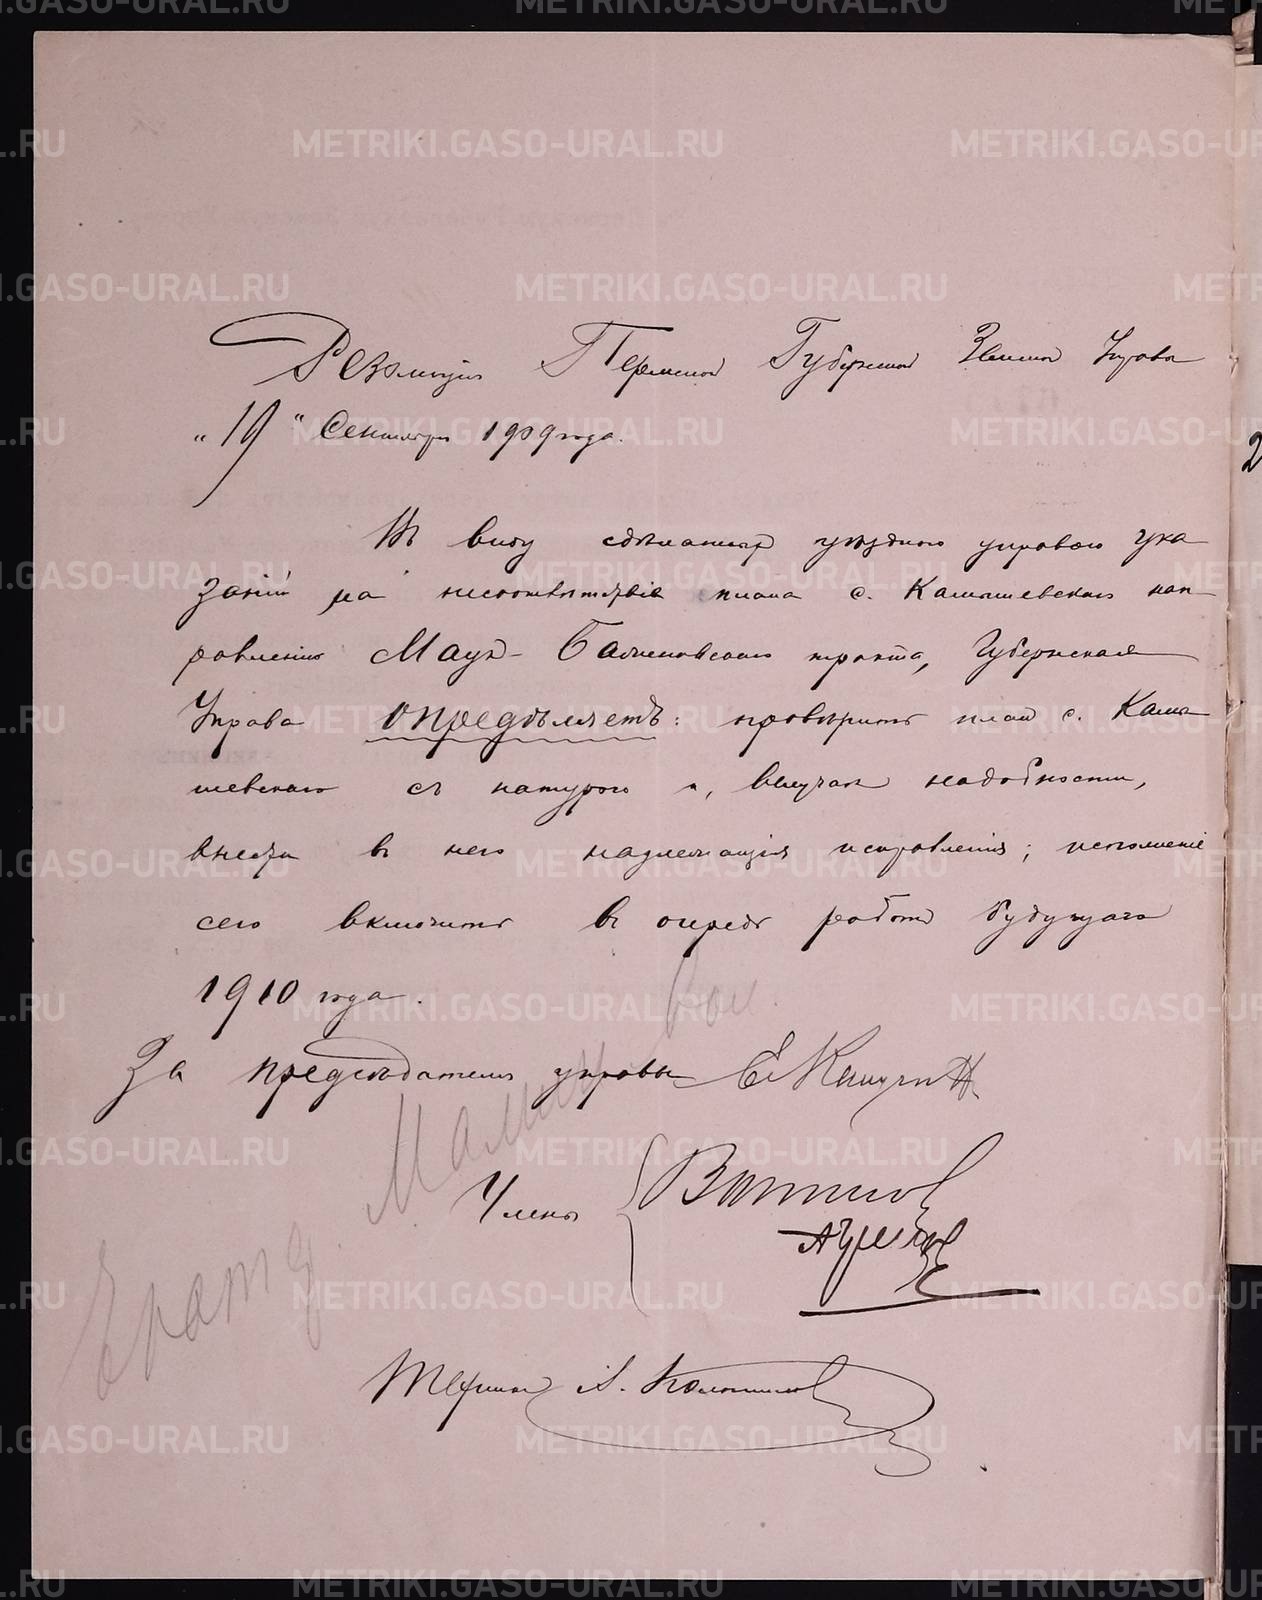 Резолюція Пермской Губернской Земской Управы
„19" Сентября 1909 года.
Въ виду сдѣланныхъ уѣздною управою ука
заній на несоотвѣтствіе плана с. Камышевскаго нап
равленію Маук-Балтымовскаго тракта, Губернская
Управа опредѣляетъ: провѣрить план с. Камы
шевскаго съ натурою и, въ случаѣ надобности,
внести въ него надлежащія исправленія; исполненіе
сего включить въ очередь работ будущаго
1910 года.
За предсѣдателя управы Е.
Члены
Техник А.
METRIKI.GASO-URAL.RU